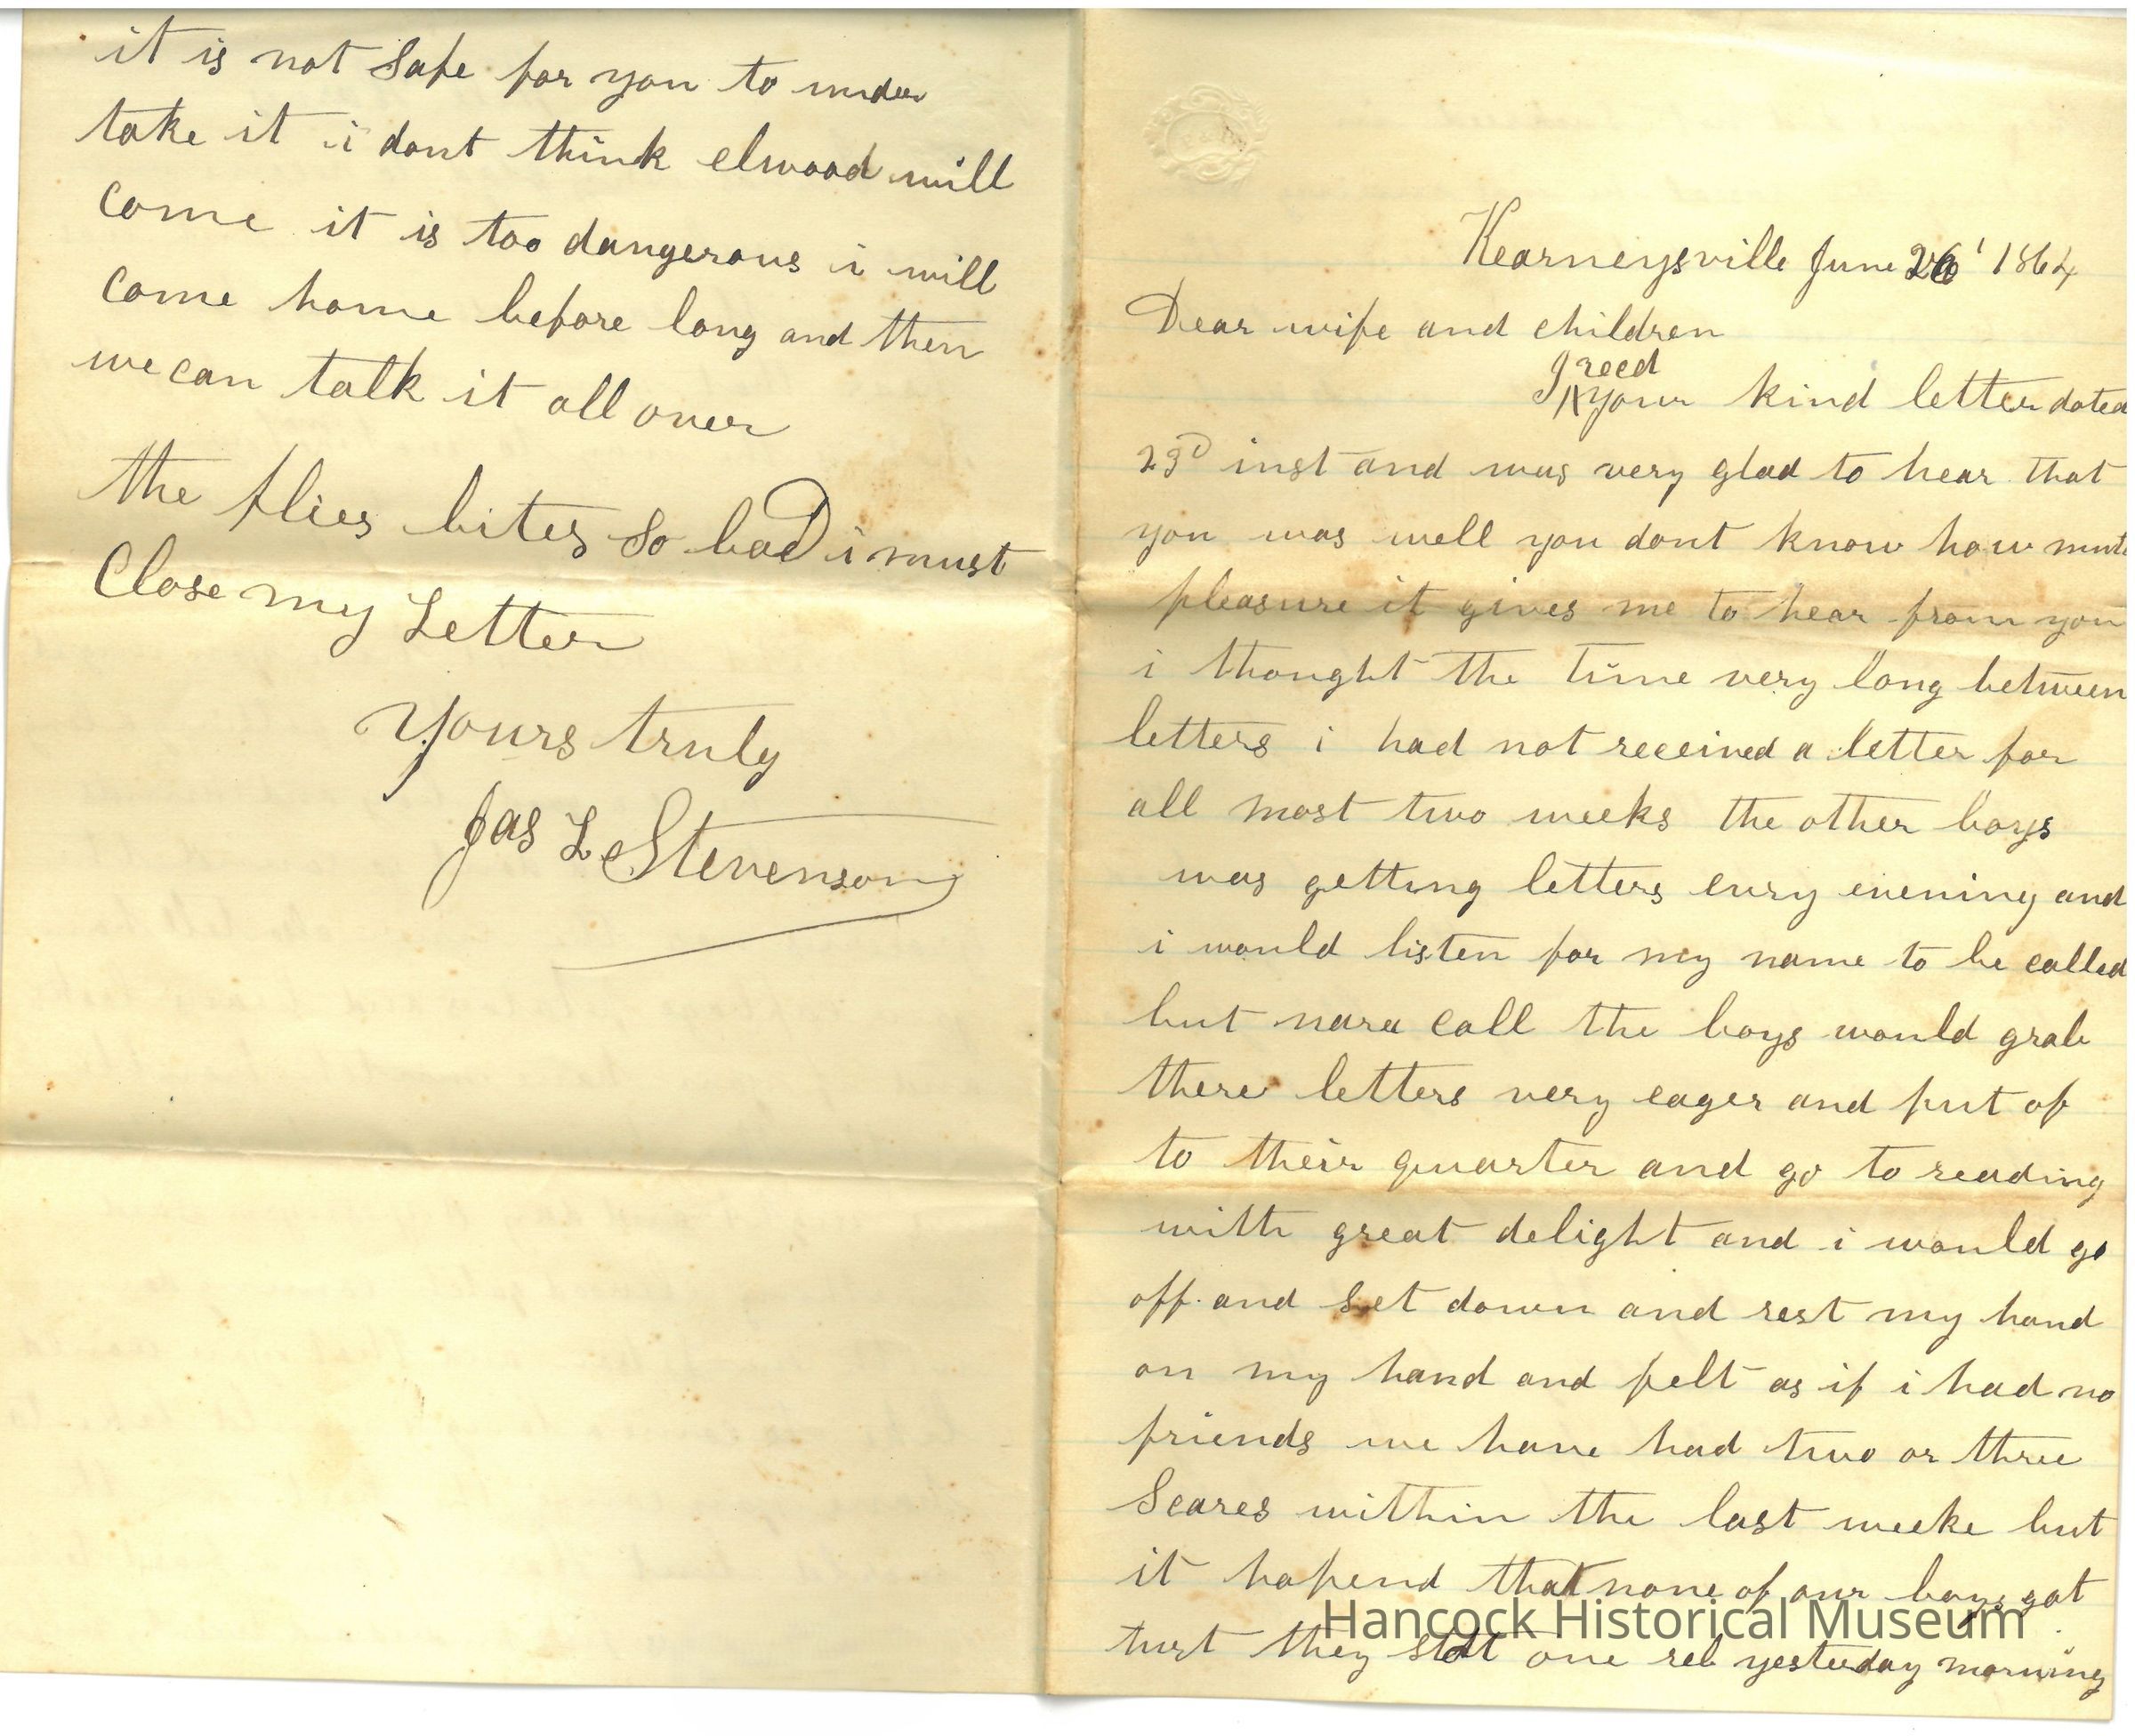 it is not Safe for you to under
take it i dont think elwood will
Come it is too dangerous i will
Come home before long and then
we can talk it all over
the flies bites So bad i must
Close my Letter
Yours truly
Jas L Stevenson
Kearneysville June 26 1864
Dear wife and children
I recd
your kind letter dated
23D inst and was very glad to hear that
you was well you dont know how
pleasure it gives me to hear from you
i thought the time very long between
letters i had not received a letter for
all most two weeks the other boys
was getting letters evry evening and
i would listen for my name to be called
but nara call the boys would grab
there letters very eager and put of
to their quarter and go to reading
with great delight and i would go
off and set down and rest my hand
on my hand and felt as if i had no
friends we have had two or three
Scares within the last weeke but
it hapend that none of our boys got
they one reb yesterday morning
Hancock Historical Museum